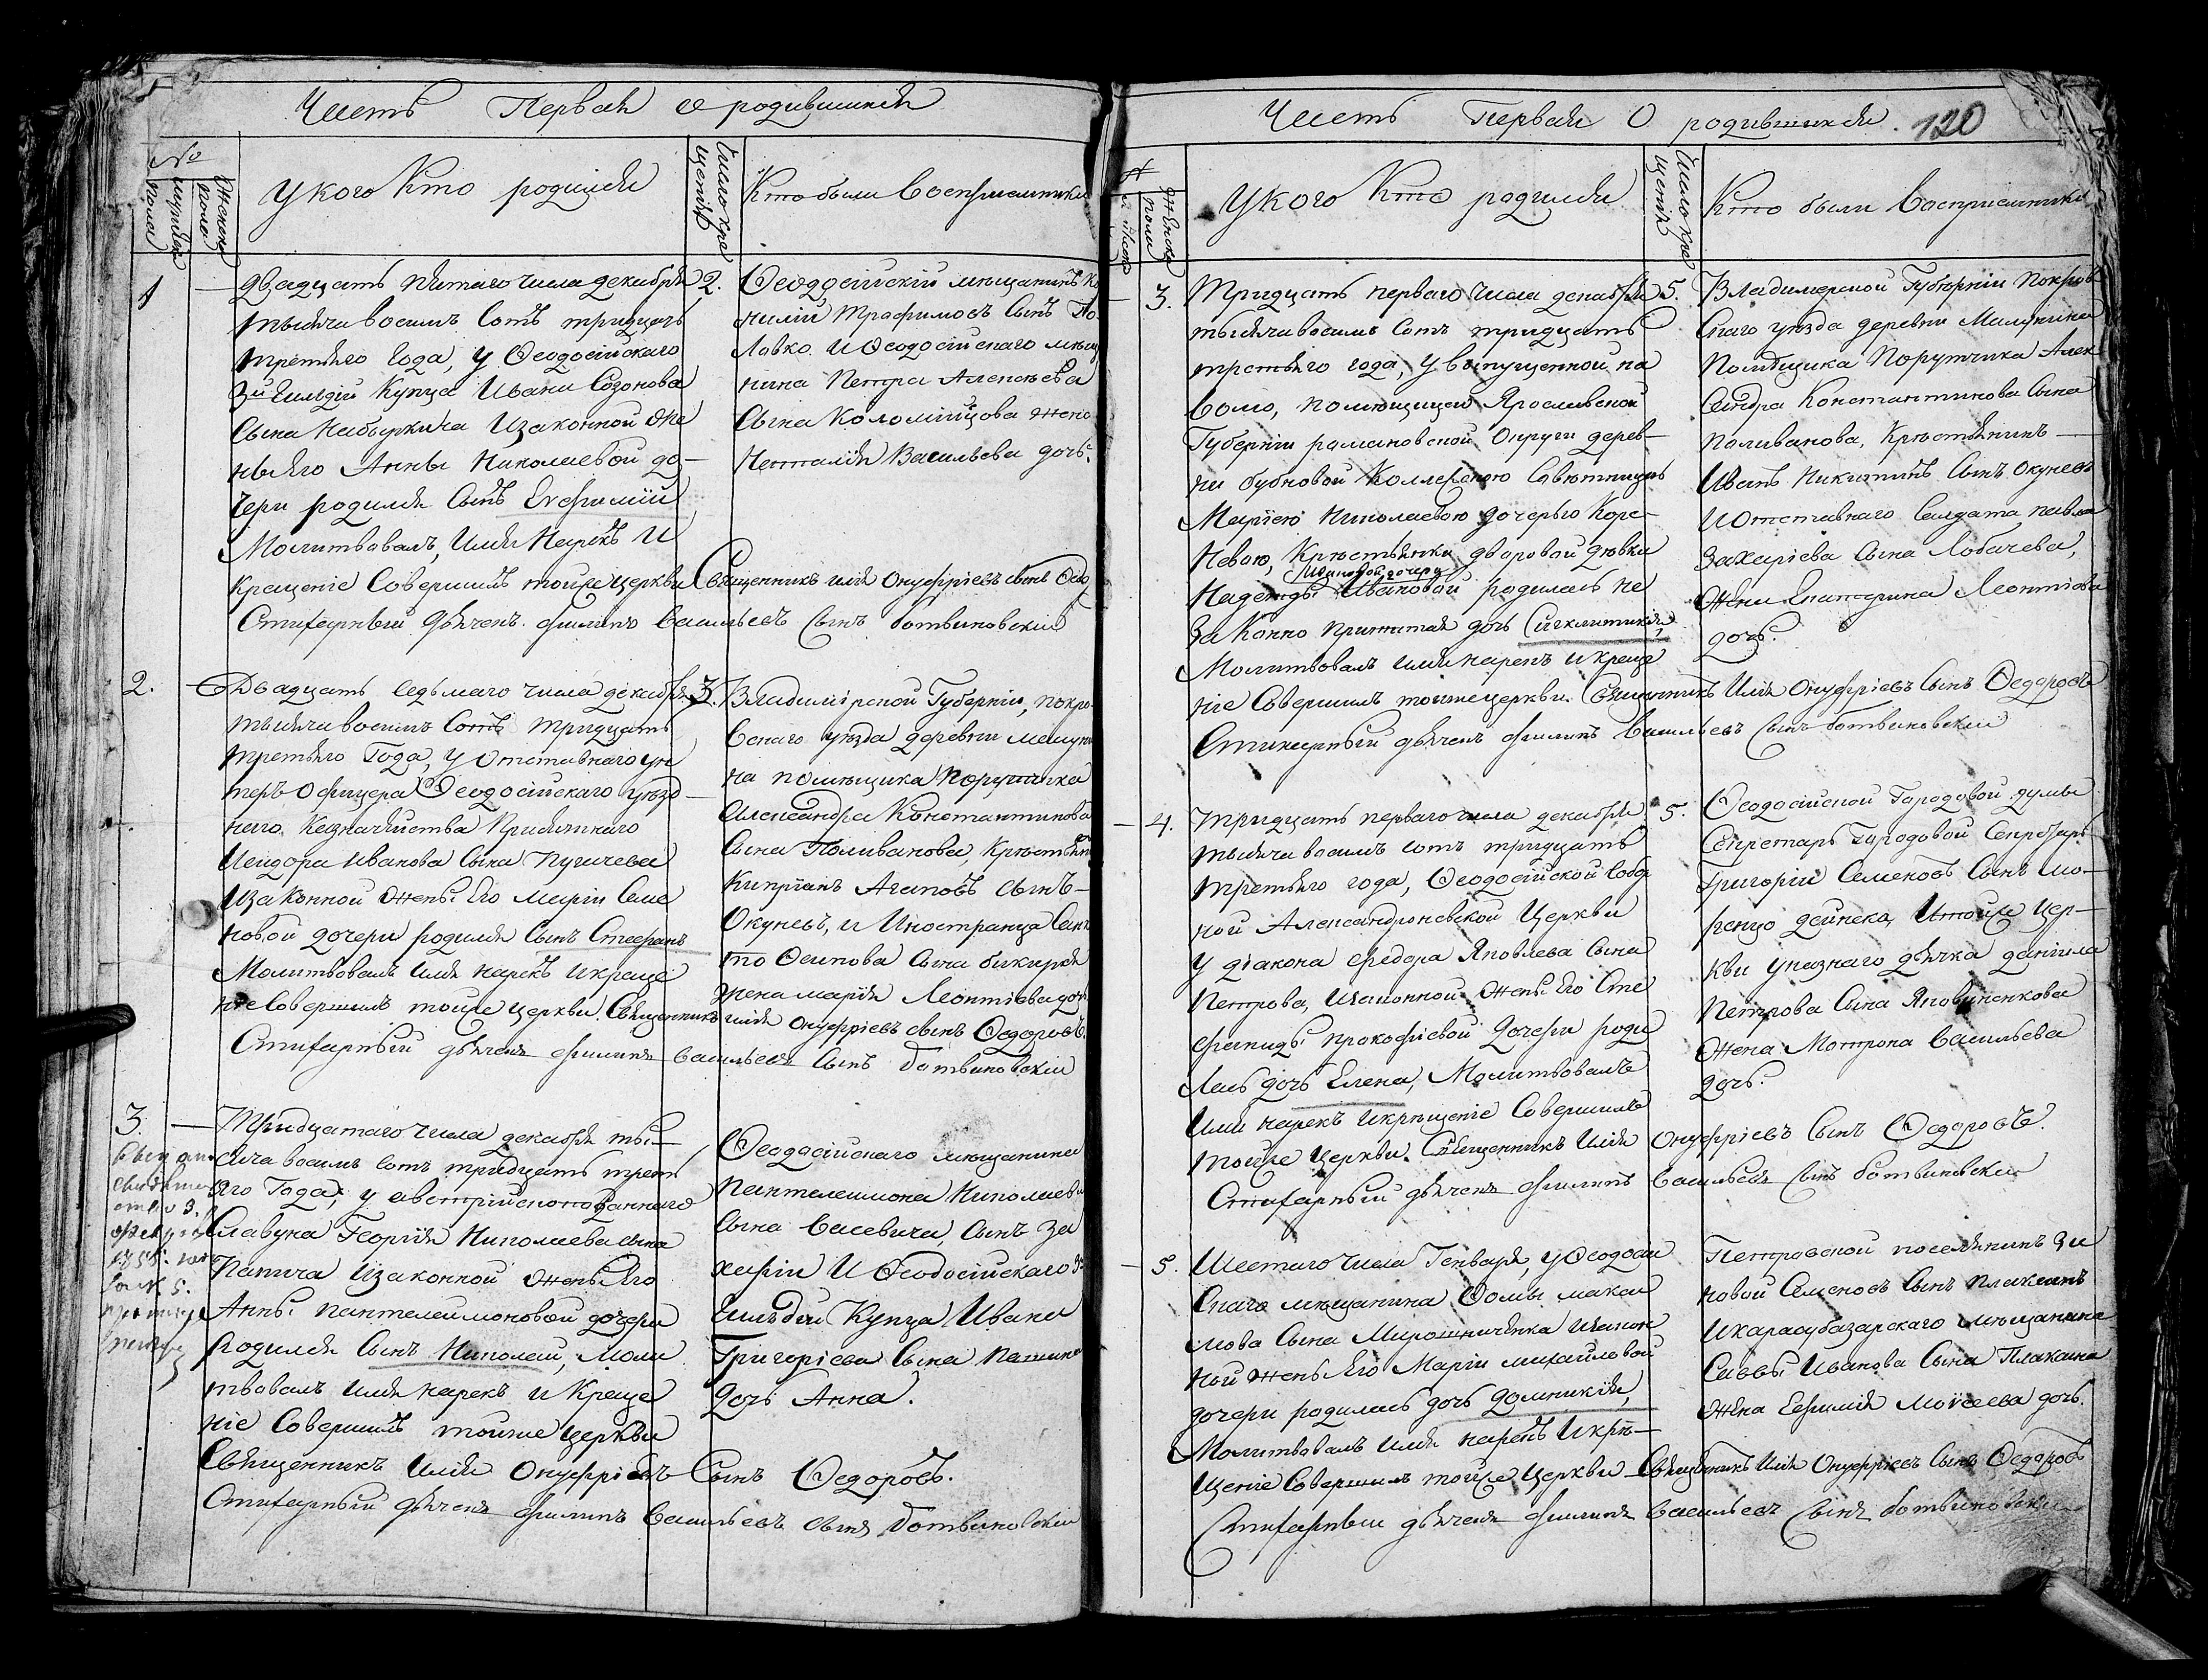 Часть Первая о родившихся
№
мужеска пола
женска пола
У кого Кто родился
Число кре
щенія
Кто были Воспріемники
1 — Двадцать пятаго числа декабря 2.
тысяча восимъ Сотъ тридцать
третьяго Года, у Ѳеодосійскаго
3й Гильдіи Купца Ивана Созонова
Сына изаконной Же
ны Его Анны Николаевой до-
чери родился Сынъ Евфимій
Молитвовалъ, имя Нарекъ И
Крещеніе Совершилъ тойже церкви Священникъ илія Онуфріевъ сынъ Ѳедо
Стихарный дьячекъ филипъ Васильевъ Сынъ ботвиновскій
Ѳеодосійскій мещанинъ Ко
нилій Трафимовъ Сынъ По
Лавко. И Ѳеодосійскаго мещ
нина Петра Алексѣева
Сына Коломійцова жена
Наталія Васильева дочь.
2. — Двадцать Седьмаго числа декабря 3.
тысяча восимъ Сотъ тридцать
третьяго Года, у Отставнаго ун
теръ Офицера Ѳеодосійскаго уѣзд-
наго Казначейства Присяжнаго
Исидора иванова Сына Пугачева
Изаконной жены Его Маріи Семе
новой дочери родился Сынъ Стефанъ
Молитвовалъ имя нарекъ икреще
ніе Совершилъ тойже церкви Священникъ илія Онуфріевъ сынъ Ѳедоровъ.
Стихарный дьячекъ филипъ васильевъ Сынъ ботвиновскій
Владимірской Губерніи, покро
вскаго уѣзда деревни
на помещика Поручика
Александра Константинова
Сына Поливанова, Крестьян
Кипріанъ Агаповъ сынъ-
Окуневъ, и Иностранца
то Осипова Сына
жена марія Леонтіева доч
3. — Тридцатаго числа декабря ты-
сяча восимъ сотъ тридцать треть
яго Года, у австрійскоподданнаго
Славука Георгія Николаева сына
Папича Изаконной жены Его
Анны пантелеимоновой дочери
родился Сынъ Николай, Моли
твовалъ имя нарекъ и Креще
ніе Совершилъ тойже церкви
Священникъ Илія Онуфріевъ Сынъ Ѳедоровъ.
Стихарный дьячекъ филипъ Васильевъ сынъ ботвиновскій
Ѳеодосійскаго мещанина
Пантелеимона Николаева
Сына Василевича, Сынъ За
харій И Ѳеодосійскаго 3й
Гильдіи Купца Ивана
Григоріева Сына
Дочь Анна.
Часть Первая О родившихся. 120
У кого Кто родился
Число кре
щенія
Кто были Воспріемники
— 3. Тридцать перваго числа декабря 5.
тысяча восимъ Сотъ тридцать
третьяго года, у выпущенной на
волю, помещицею Ярославской
Губерніи романовской Округи дерев-
ни бубновой Коллежскою Совѣтницею
Маріею Николаевою дочерью Коре-
невою, Крестьянки дворовой дѣвки
Надежды Ивановой родилась не
Ивановой дочери
Законно прижитая дочь Сигклитикія,
Молитвовалъ имя нарекъ икреще
ніе Совершилъ тойже церкви. Священникъ Илія Онуфріевъ Сынъ Ѳедоровъ
Стихарный дьячекъ филипъ Васильевъ Сынъ ботвиновскій
Владимерской Губерніи Покров
скаго уѣзда деревни
Помещика Порутчика Алек
сандра Константинова Сына
поливанова, Крестьянинъ —
Иванъ Никитинъ Сынъ Окуневъ
И Отставнаго Салдата павла
Захаріева Сына Лобачева,
Жена Екатерина Леонтіева
дочь.
— 4. Тридцать перваго числа декабря 5.
тысяча восимъ сотъ тридцать
третьяго года, Ѳеодосійской Собор
ной Александроневской Церкви
у діакона федора Яковлева Сына
Петрова, изаконной жены Его Сте
фаниды прокофіевой дочери роди
лась дочь Елена, Молитвовалъ
Имя нарекъ икрещеніе Совершилъ
тойже церкви. Священникъ Илія Онуфріевъ Сынъ Ѳедоровъ.
Стихарный дьячекъ филипъ Васильевъ Сынъ ботвиновскій
Ѳеодосійской Городовой думы
Секретарь Городовой Секретарь
Григорій Семеновъ Сынъ
дейнека, Итойже цер-
кви указнаго дьячка даніила
Петрова Сына Яковиненкова
Жена Матрона Васильева
дочь.
— 5. Шестаго числа Генваря, у Ѳеодосій
скаго мещанина Ѳомы макси
мова Сына Мирошниченка изакон
ной жены Его Маріи михайловой
дочери родилась дочь Домникія,
Молитвовалъ имя нарекъ Икре-
щеніе Совершилъ тойже церкви Священникъ Илія Онуфріевъ Сынъ Ѳедоровъ
Стихарный дьячекъ филипъ Васильевъ Сынъ ботвиновскій
Петровской поселянинъ Зи
новій Семеновъ Сынъ Плаксинъ
Икарасубазарскаго мещанина
Саввы Иванова Сына Плаксина
Жена Евфимія Моисеева дочь.